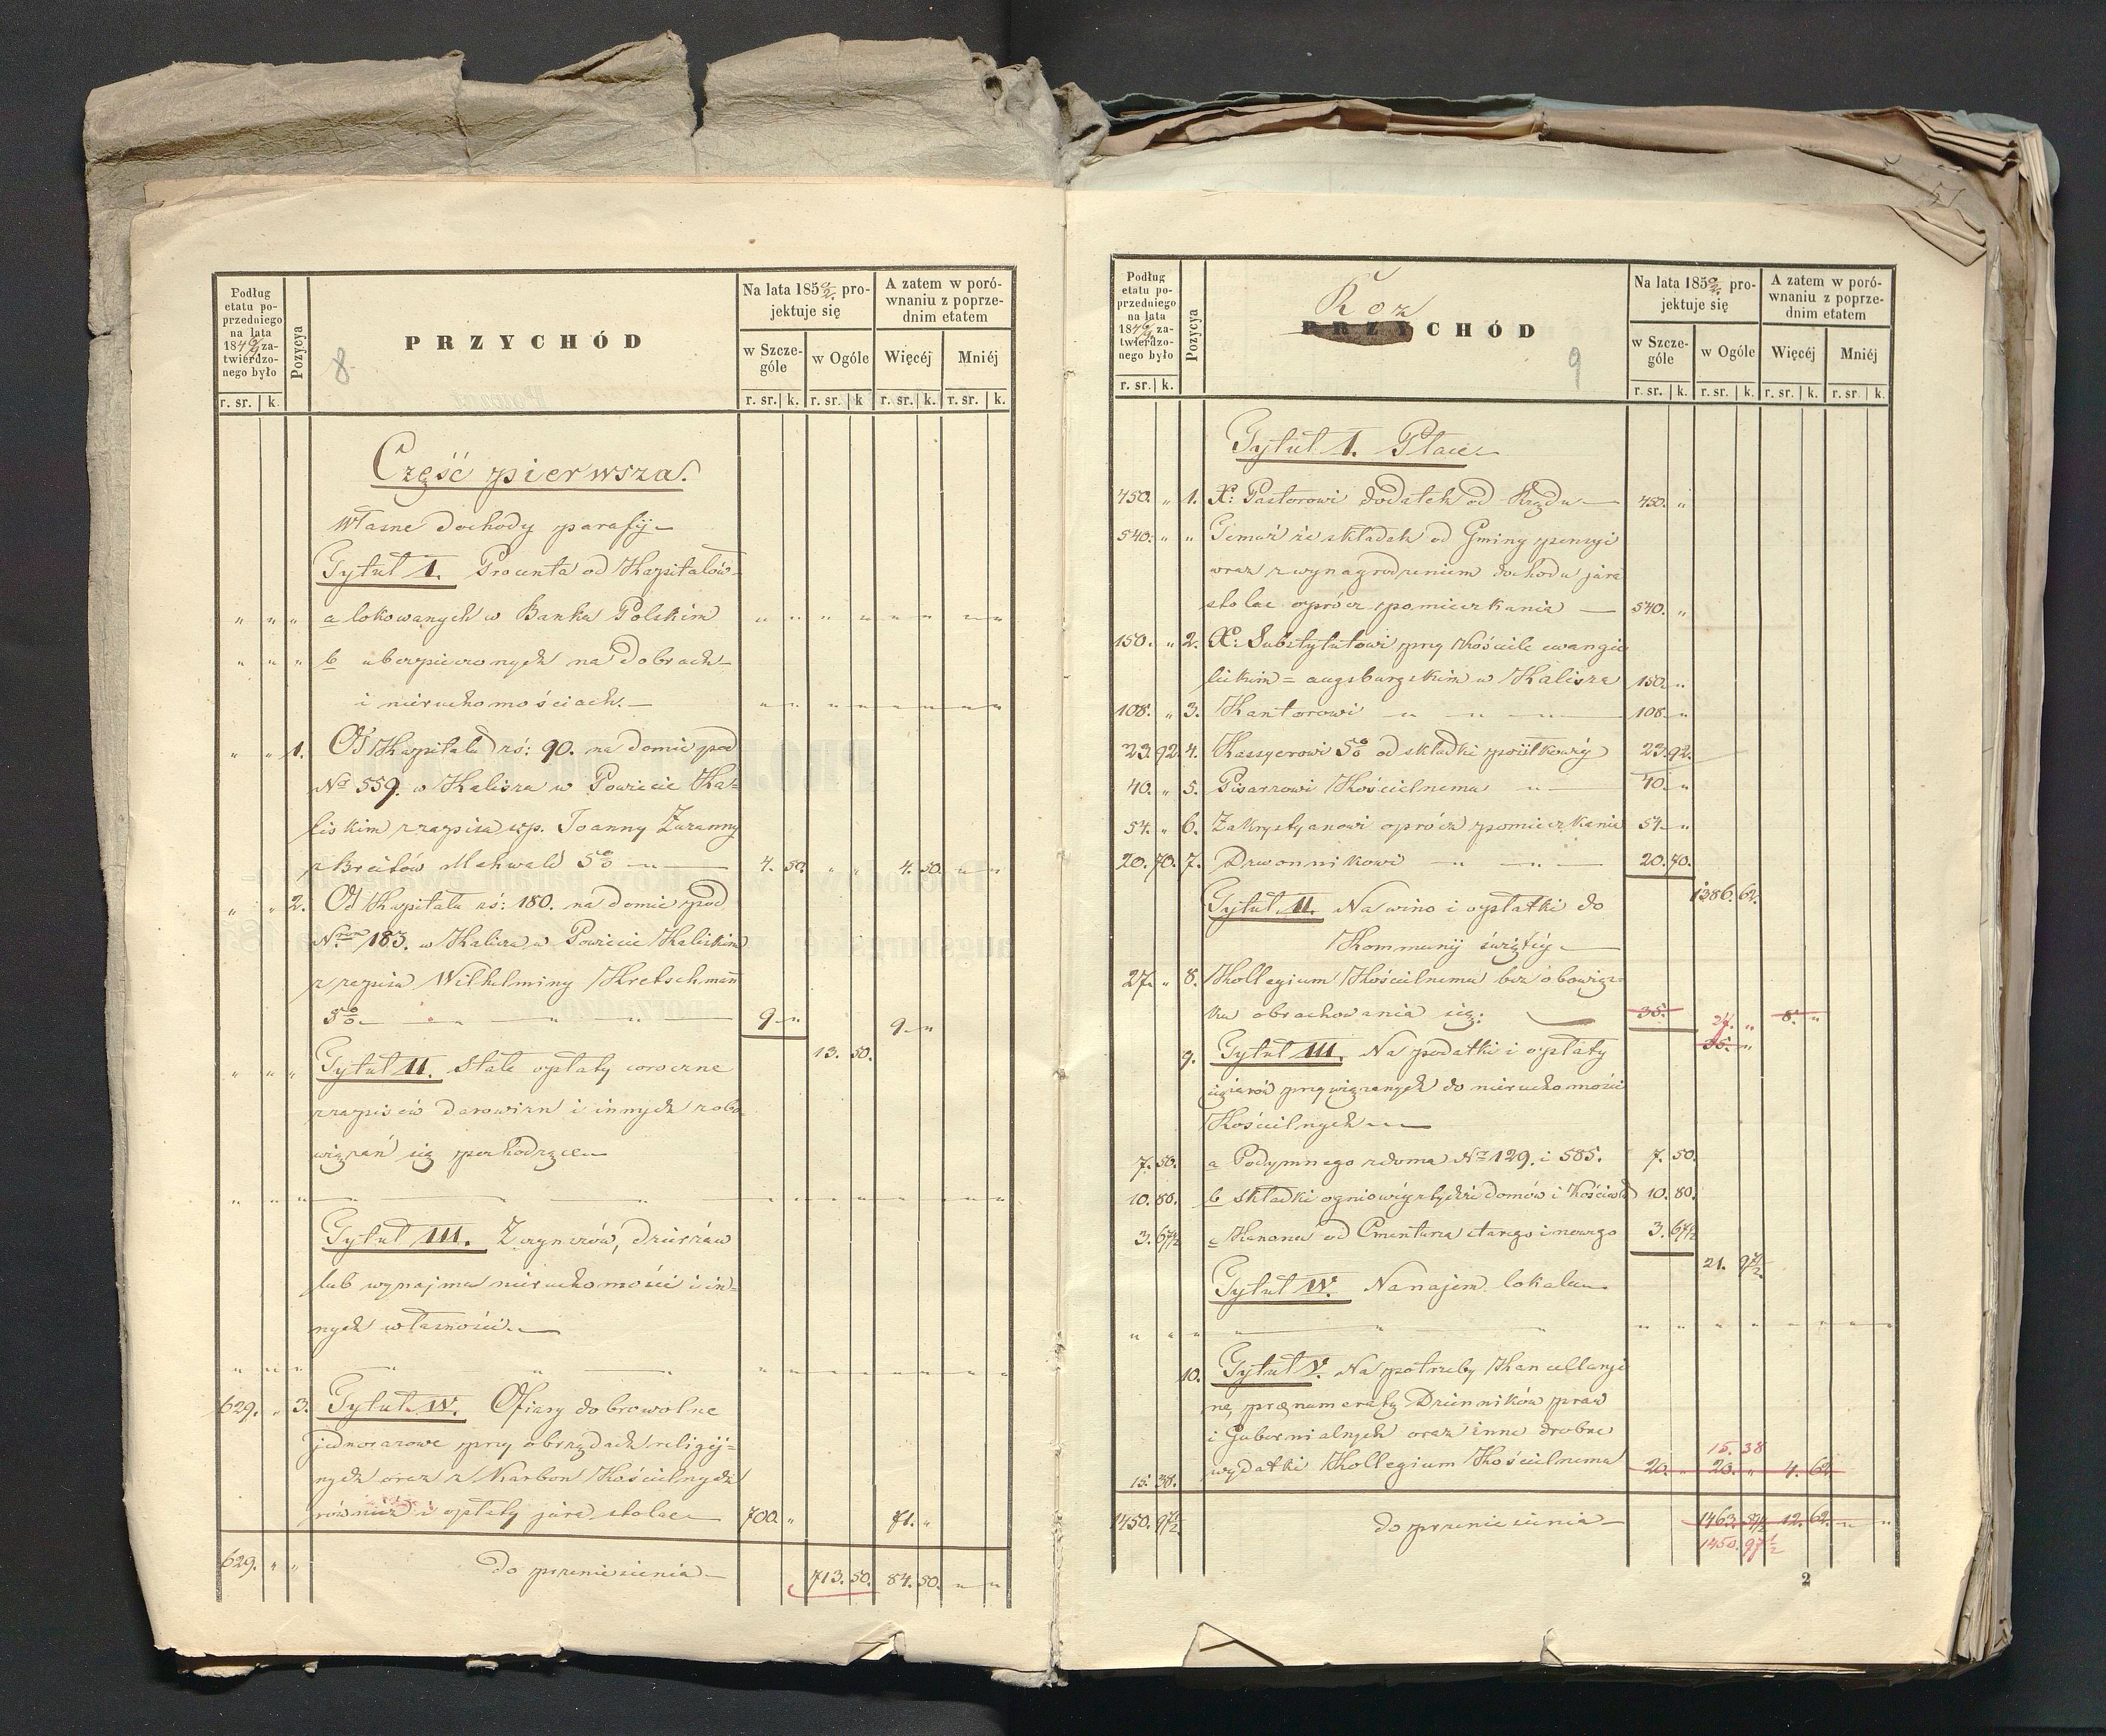 Podług
etatu po-
przedniego
na lata
184 za-
twierdzo-
nego było
Pozycya
PRZYCHÓD
8.
Na lata 185 pro-
jektuje się
A zatem w poró-
wnaniu z poprze-
dnim etatem
w Szcze-
góle
w Ogóle
Więcéj
Mniéj
r. sr. k. r. sr. k. r. sr. k. r. sr. k. r. sr. k.
Część pierwsza.
Własne dochody parafij
Tytuł I. Procenta od Kapitałów
" " " a lokowanych w Banku Polskim " " " " " " " "
" " " b ubezpieczonych na dobrach
i nieruchomościach. " " " " " " " "
" " 1. Od Kapitału rs: 90. na domie pod
No 559. w Kaliszu w Powiecie Ka-
liskim z zapisu śp. Joanny Zuzanny
z Breitów Mehwald 5% 4. 50. " " 4. 50. " "
" " 2. Od Kapitału rs: 180. na domie pod
Nrem 183. w Kaliszu w Powiecie Kaliskim
z zapisu Wilhelminy Kretschmann
5% 9. " 9. "
13. 50.
" " " Tytuł II. Stałe opłaty coroczne
z zapisów darowizn i innych zobo-
wiązań się pochodzące
" " " " " " " " " " "
Tytuł III. Z czynszów, dzierżaw
lub wynajmu nieruchomości i in-
nych własności.
" " " " " " " " " " "
629. " 3. Tytuł IV. Ofiary dobrowolne
jednorazowe przy obrzędach religij-
nych oraz z Karbon Kościelnych
również i opłaty jura stolae 700. " 71. "
629. " " do przeniesienia 713. 50. 84. 50. " "
51
Podług
etatu po-
przedniego
na lata
184 za-
twierdzo-
nego było
Pozycya
Roz
PRZYCHÓD
9
Na lata 185 pro-
jektuje się
A zatem w poró-
wnaniu z poprze-
dnim etatem
w Szcze-
góle
w Ogóle
Więcéj
Mniéj
r. sr. k. r. sr. k. r. sr. k. r. sr. k. r. sr. k.
Tytuł I. Płace
450. " 1. X: Pastorowi dodatek od Rządu 450. "
540. " " Temuż ze składek od Gminy pensyi
wraz z wynagrodzeniem dochodu jura
stolae oprócz pomieszkania 540. "
150. " 2. X: Substytutowi przy Kościele ewangie
lickim = augsburgskim w Kaliszu 150. "
108. " 3. Kantorowi 108. "
23. 92. 4. Kassyerowi 5% od składki posiłkowéj 23. 92.
40. " 5. Pisarzowi Kościelnemu 40. "
54. " 6. Zakrystyanowi oprócz pomieszkania 54. "
20. 70. 7. Dzwonnikowi 20. 70.
1386. 62.
Tytuł II. Na wino i opłatki do
Kommunij świętéj
27. " 8. Kollegium Kościelnemu bez obowiąz-
ku obrachowania się: 35. 27. " 8. "
35. "
9. Tytuł III. Na podatki i opłaty
ciężarów przywiązanych do nieruchomości
Kościelnych
7. 50. a Podymnego z doma No 129. i 585. 7. 50.
10. 80. b składki ogniowéj z tychże domów i Kościoła 10. 80.
3. 67½ c Kanonu od Cmentarza starego i nowego 3. 67½
21. 97½
Tytuł IV. Na najem lokalu
" " " " " " " " " " "
10. Tytuł V. Na potrzeby Kancellaryj
ne, prænumeratę Dzienników praw
i Gubernialnych oraz inne drobne
15. 38
15. 38. wydatki Kollegium Kościelnemu 20. " 20. " 4. 62
1450. 97½ do przeniesienia 1463. 59½ 12. 62. " "
1450. 97½
2